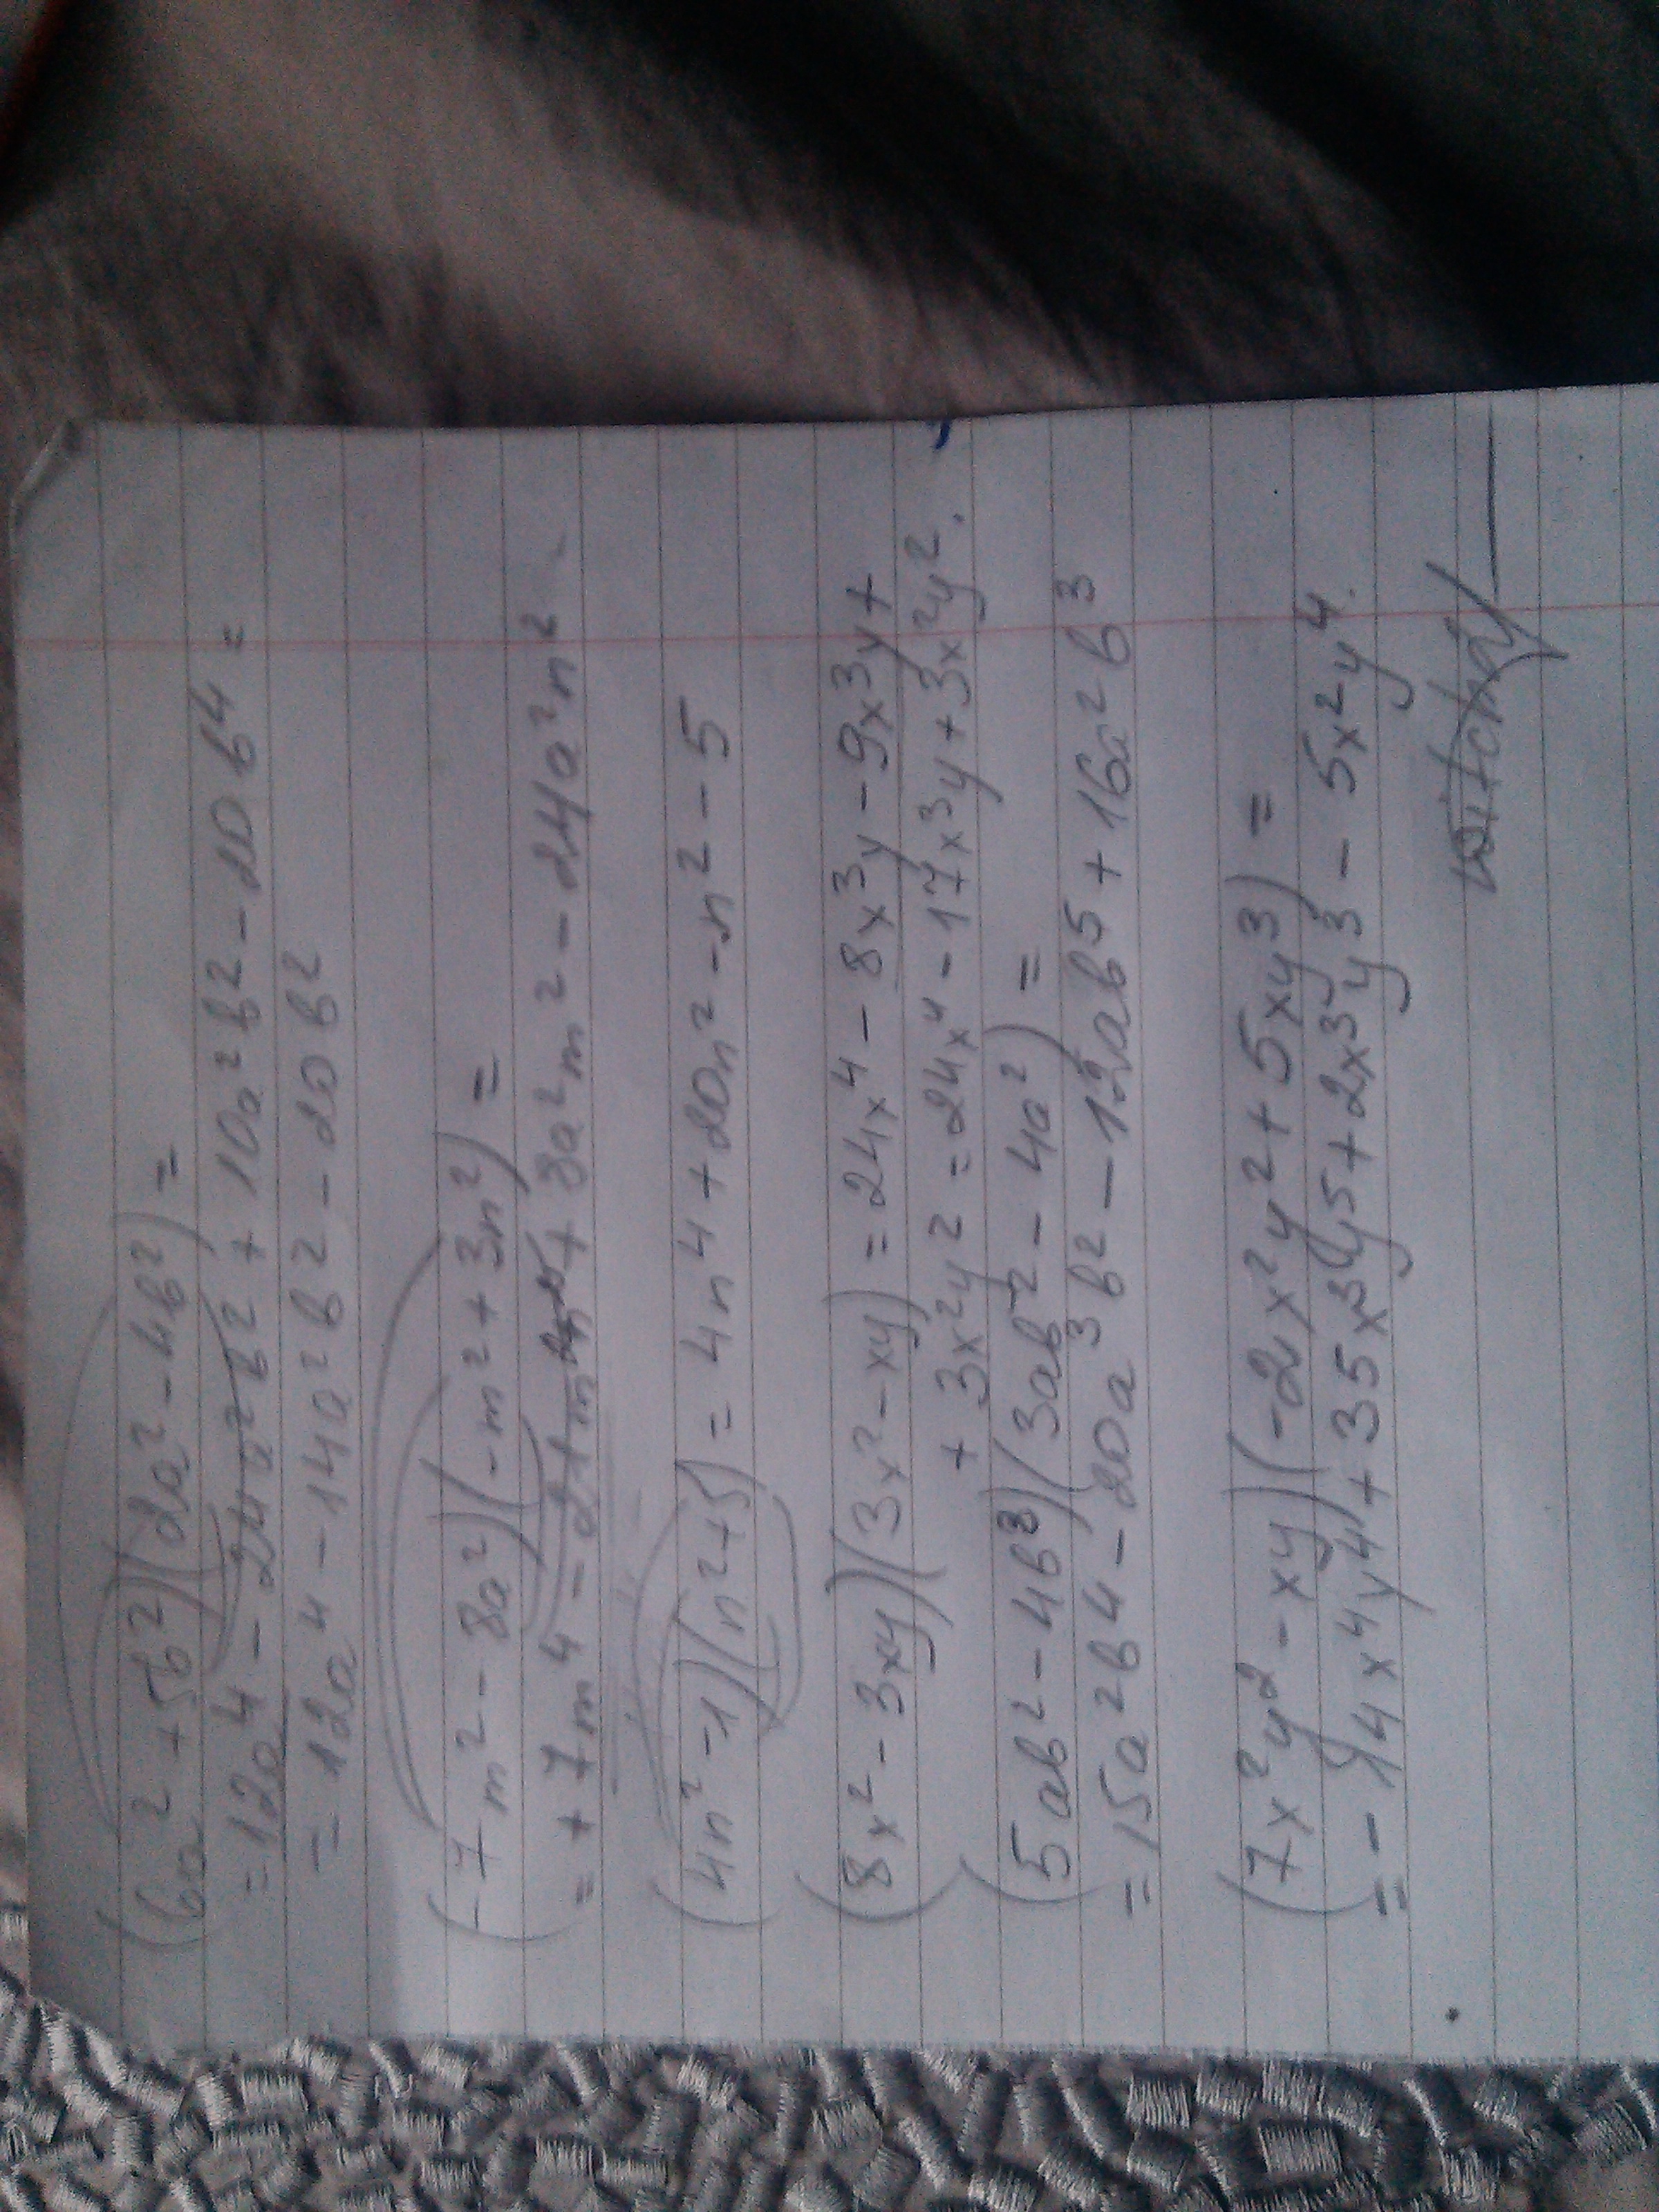 (6a² + 5b²)(2a² - 4b²) =
= 12a⁴ - 24a²b² + 10a²b² - 20b⁴ =
= 12a⁴ - 14a²b² - 20b²
(-7m² - 8a²)(-m² + 3n²) =
= + 7m⁴ - 21m²n² + 8a²m² - 24a²n²
(4n² - 1)(n² + 5) = 4n⁴ + 20n² - n² - 5
(8x² - 3xy)(3x² - xy) = 24x⁴ - 8x³y - 9x³y +
+ 3x²y² = 24x⁴ - 17x³y + 3x²y².
(5ab² - 4b³)(3ab² - 4a²) =
= 15a²b⁴ - 20a³b² - 12ab⁵ + 16a²b³
(7x²y² - xy)(-2x²y² + 5xy³) =
= - 14x⁴y⁴ + 35x³y⁵ + 2x³y³ - 5x²y⁴.